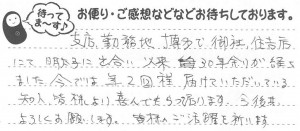 待ってま〜す♪
お便り・ご感想などなどお待ちしております。
支店勤務地 博多で御社、住吉店
にて 明太子に出会い 以来 30年余りが経ち
ました 今では 年2回程 届けていただいている
知人 皆様より喜んでもらっております 今後共
よろしくお願いします。皆様のご活躍を祈ります